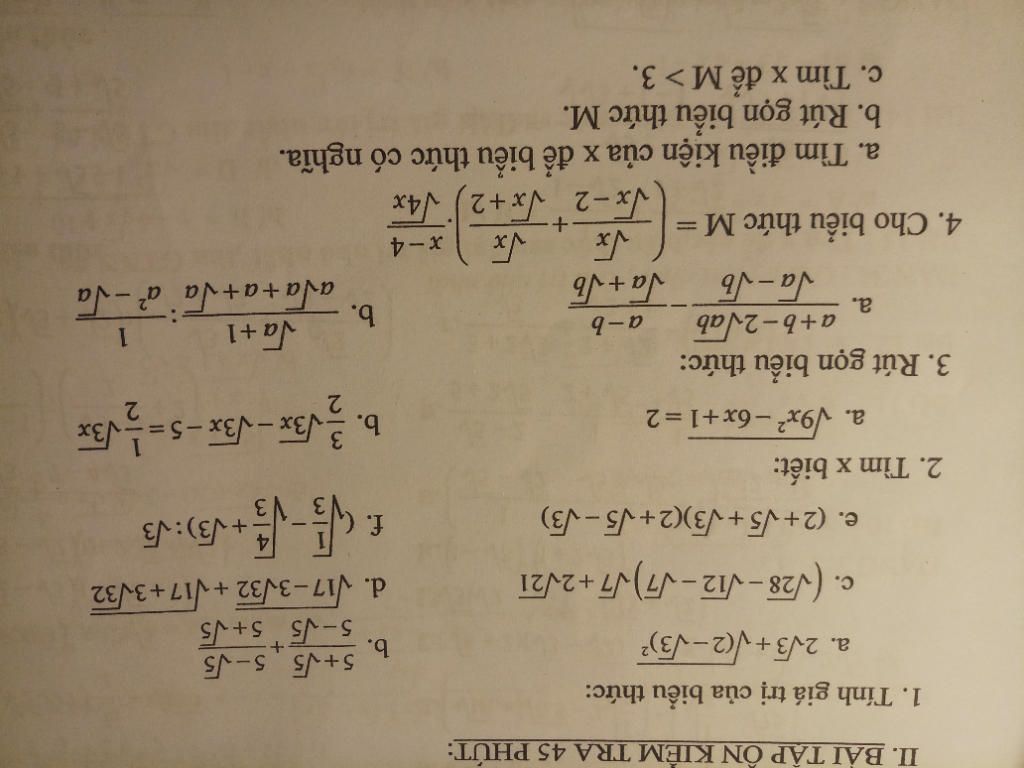 II. BÀI TẬP ÔN KIỂM TRA 45 PHÚT:
1. Tính giá trị của biểu thức:
a. 2√3 + √((2 − √3)²) b. (5+√5)/(5−√5) + (5−√5)/(5+√5)
c. (√28 − √12 − √7)√7 + 2√21 d. √(17 − 3√32) + √(17 + 3√32)
e. (2+√5+√3)(2+√5−√3) f. (√(1/3) − √(4/3) + √3) : √3
2. Tìm x biết:
a. √(9x² − 6x + 1) = 2 b. 3/2 √3x − √3x − 5 = 1/2 √3x
3. Rút gọn biểu thức:
a. (a+b−2√ab)/(√a−√b) − (a−b)/(√a+√b) b. (√a+1)/(a√a+a+√a) : 1/(a²−√a)
4. Cho biểu thức M = (√x/(√x−2) + √x/(√x+2)) · (x−4)/√4x
a. Tìm điều kiện của x để biểu thức có nghĩa.
b. Rút gọn biểu thức M.
c. Tìm x để M > 3.